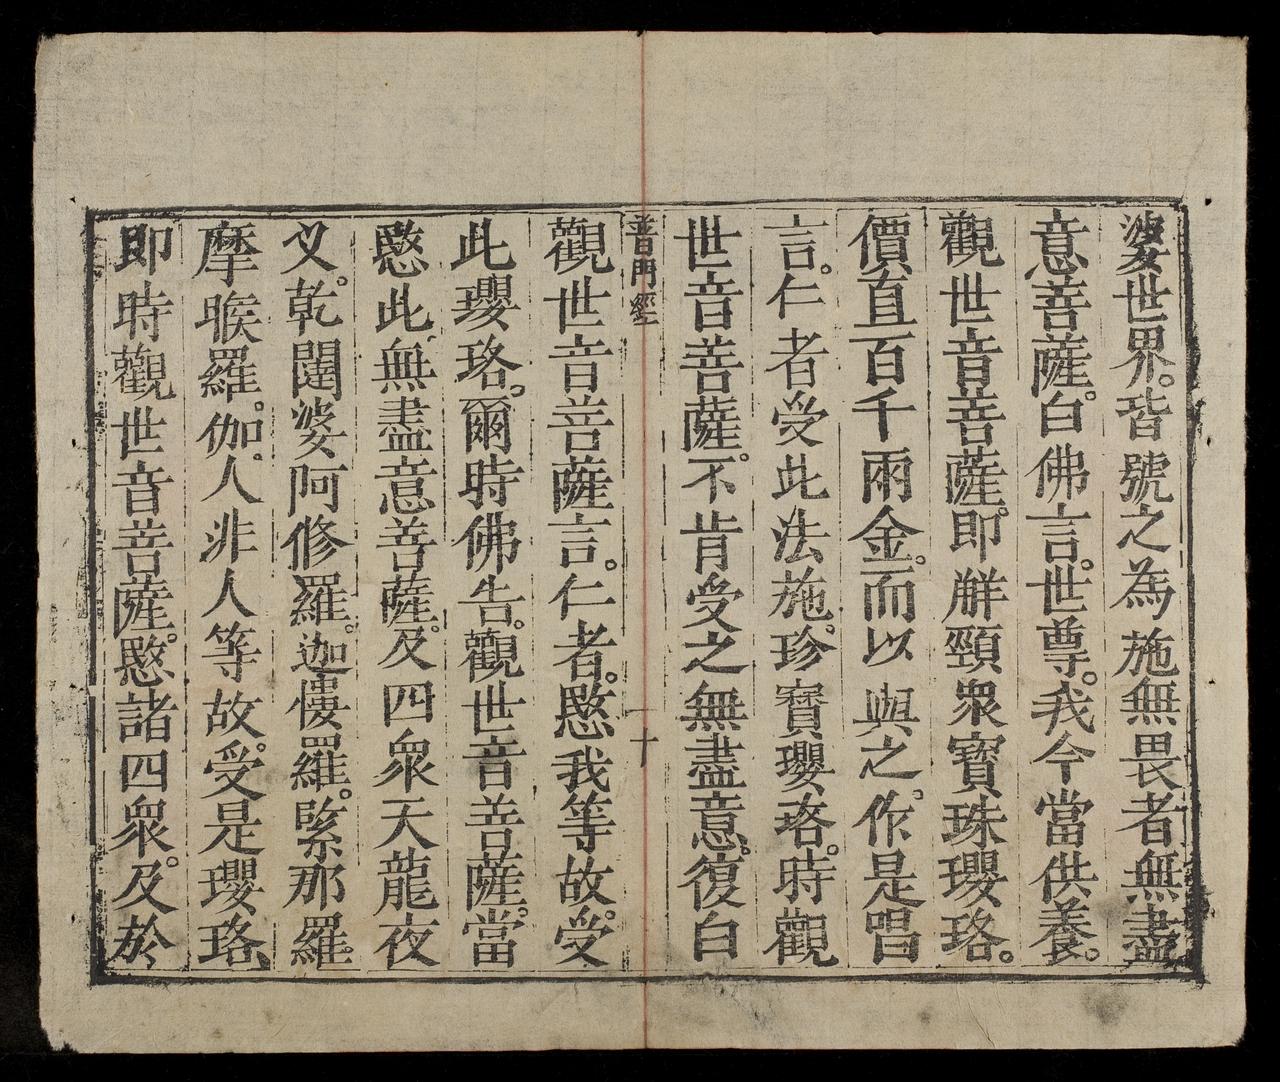 婆世界。皆號之為施無畏者無盡
意菩薩。白佛言。世尊。我今當供養。
觀世音菩薩。即解頸衆寶珠瓔珞。
價直百千兩金。而以與之。作是唱
言。仁者受此法施。珍寶瓔珞。時觀
世音菩薩。不肯受之無盡意。復白
普門經
二十
觀世音菩薩言。仁者。愍我等故。受
此瓔珞。爾時佛告。觀世音菩薩。當
愍此無盡意菩薩。及四衆天龍夜
叉。乾闥婆阿修羅。迦僂羅。緊那羅
摩㬋羅。伽。人非人等故。受是瓔珞、
即時觀世音菩薩。愍諸四衆。及於